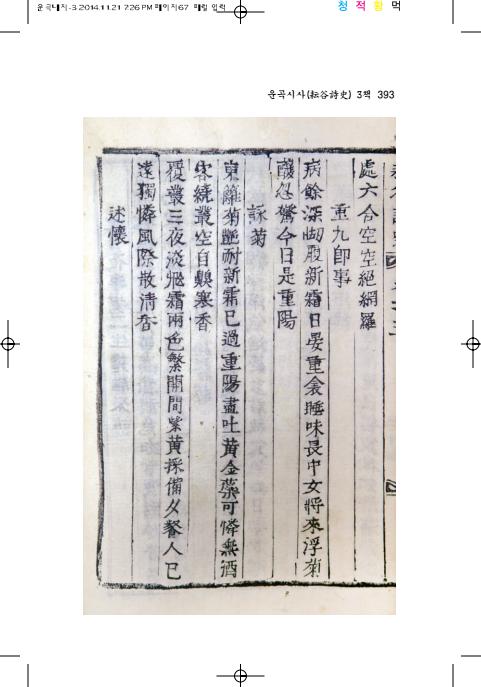 운곡대지-3 2014.11.21 7:26 PM 페이지67 매일 입력
청 적 황 먹
운곡시사(耘谷詩史) 3책 393
處六合空空絕網羅
重九即事
病餘深㤼股新霜日晏重衾睡味長中女將來浮菊
醆忽驚今日是重陽
詠菊
東籬菊艶耐新霜已過重陽盡吐黃金蘂可憐無酒
客繞叢空自嗅寒香
覆叢三夜淡飛霜兩色繁開間紫黃採備夕餐人已
遠獨憐風際散淸香
述懷